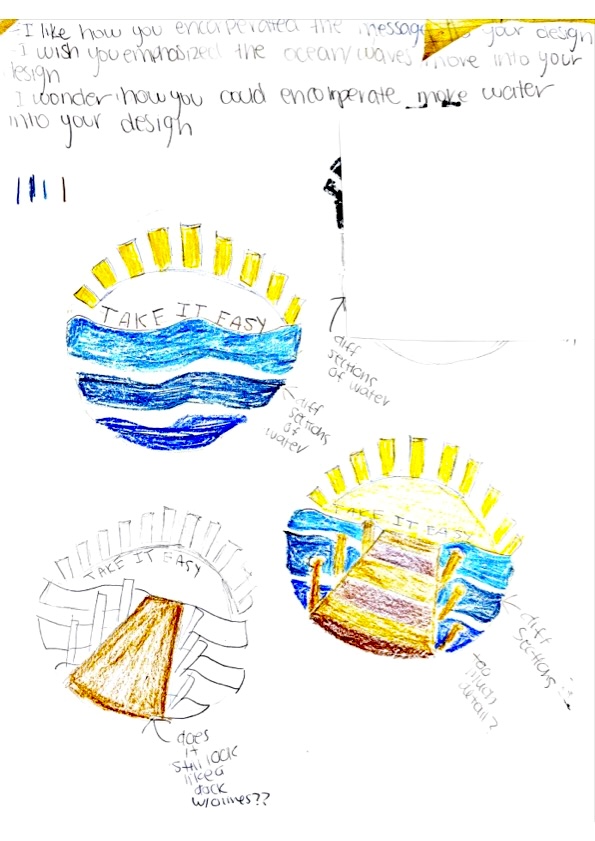 -I like how you encarperated the message to your design
-I wish you emphasized the ocean/waves more into your
design
I wonder how you could encorperate more water
into your design
TAKE IT EASY
diff
sections
of water
diff
sections
of
water
TAKE IT EASY
TAKE IT EASY
diff
sections
too
much
detail?
does
it
still look
like a
dock
w/o lines??